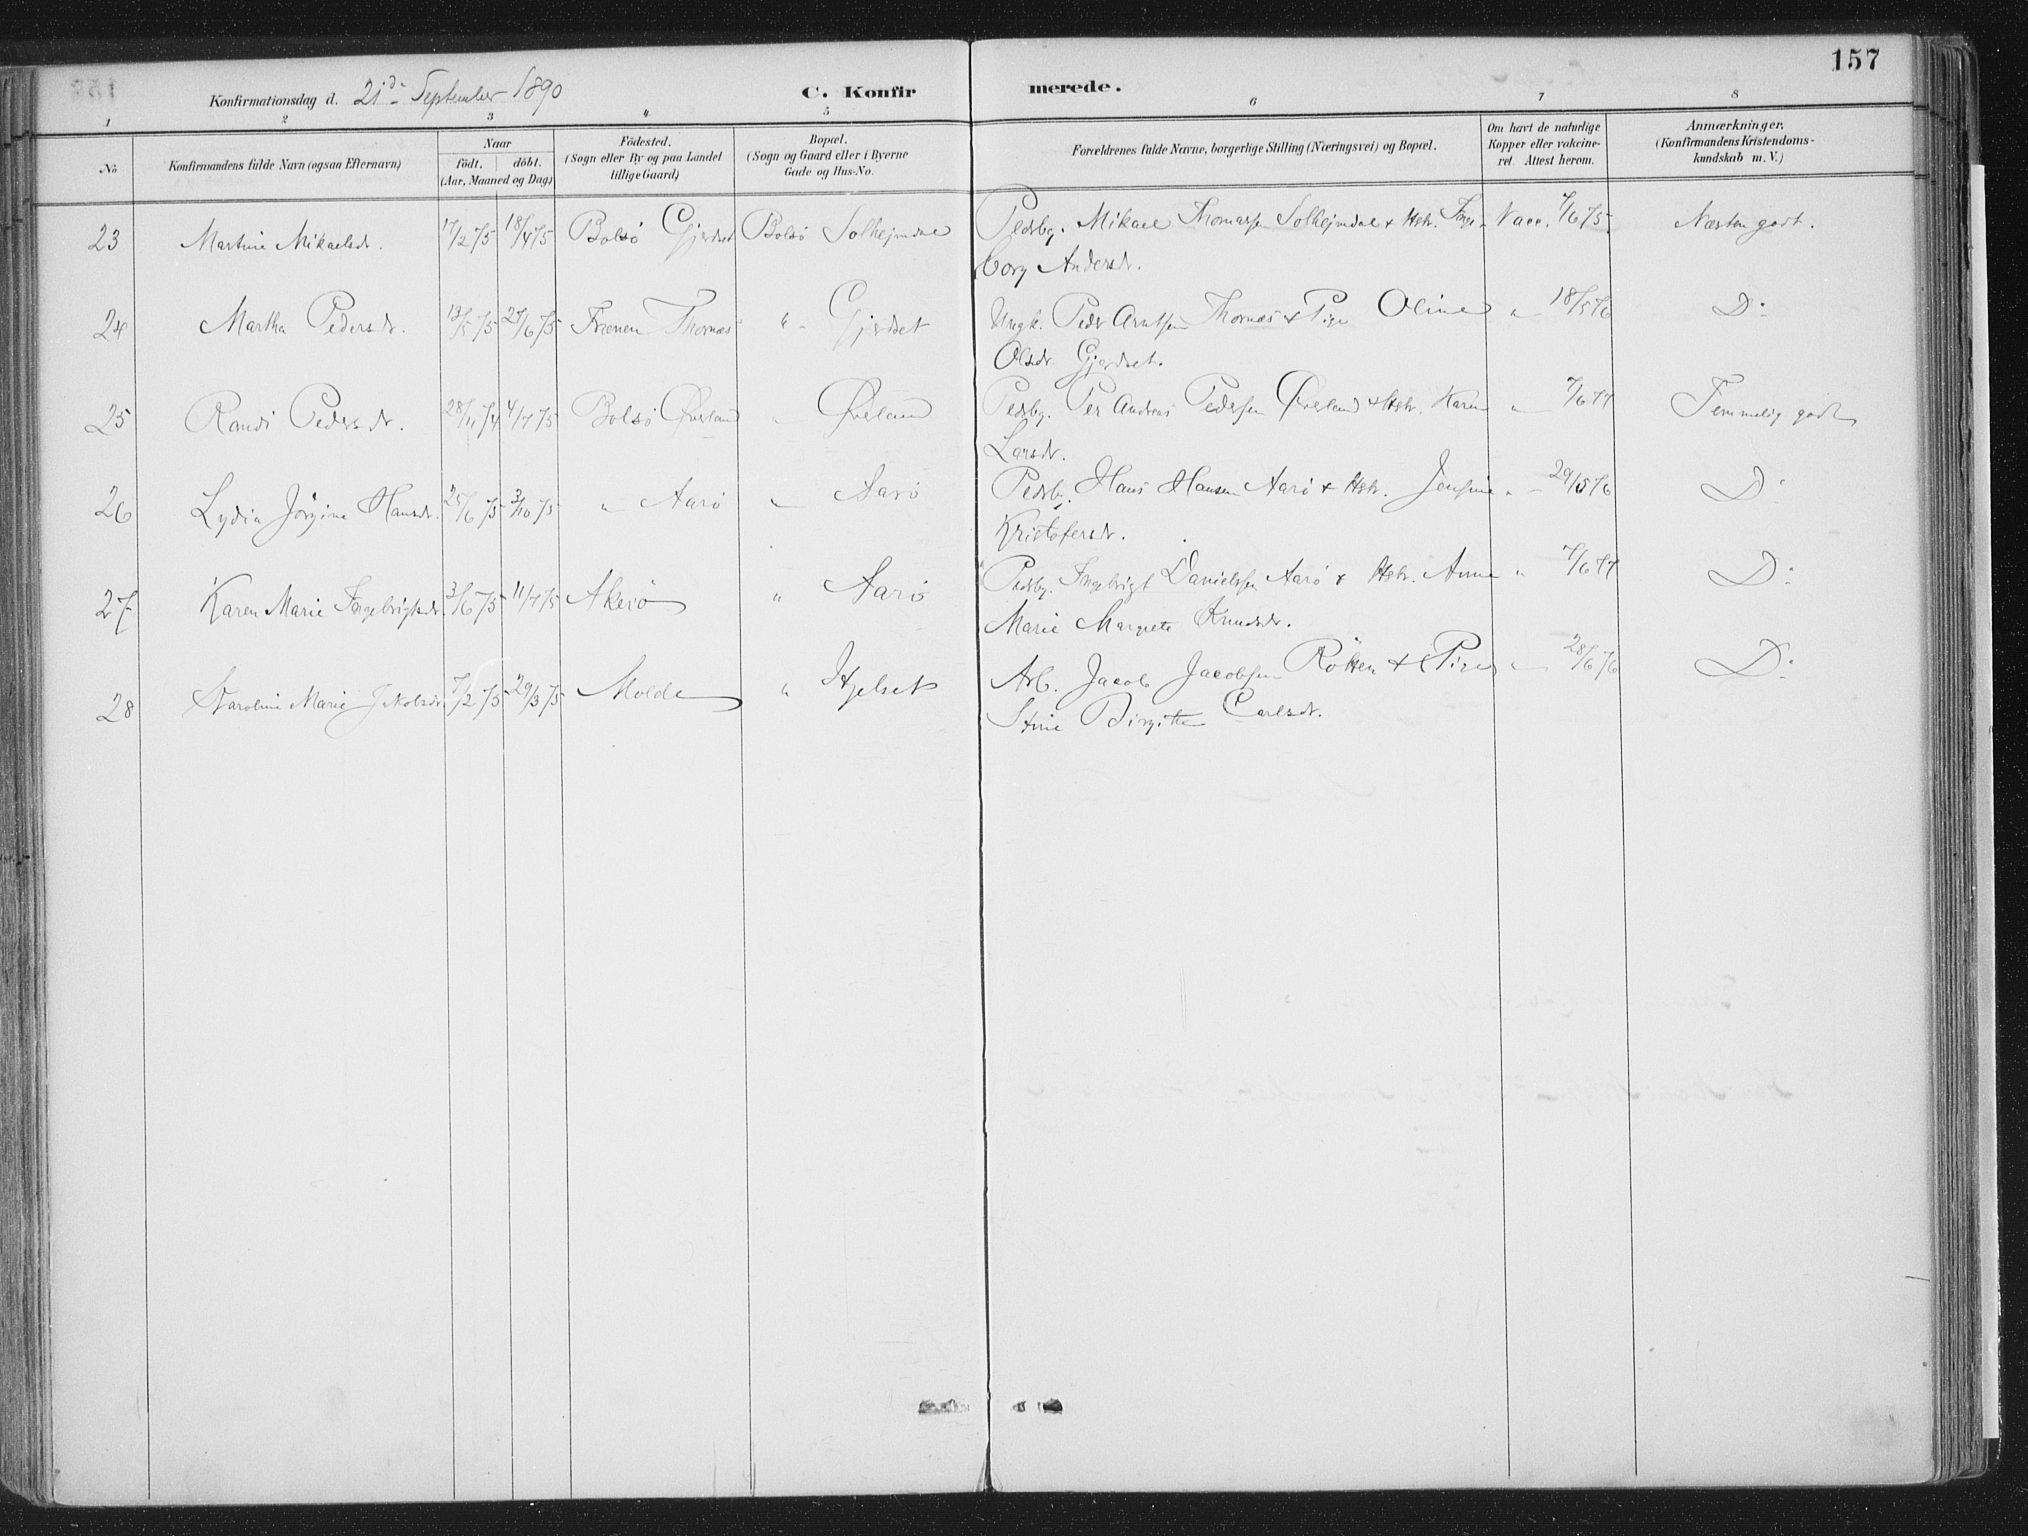 157
Konfirmationsdag d. 21de September 1890 C. Konfirmerede.
1 2 3 4 5 6 7 8
No
Konfirmandens fulde Navn (ogsaa Efternavn)
Naar
födt. döbt.
(Aar, Maaned og Dag)
Födested.
(Sogn eller By og paa Landet
tillige Gaard)
Bopæl.
(Sogn og Gaard eller i Byerne
Gade og Hus-No.
Forældrenes fulde Navne, borgerlige Stilling (Næringsvei) og Bopæl.
Om havt de naturlige
Kopper eller vakcine-
ret. Attest herom.
Anmærkninger.
(Konfirmandens Kristendoms-
kundskab m. V.)
23 Martine Mikaelsdr. 17/2 75 18/4 75 Bolsö Gjerdset Bolsö Solhejmdal Pladsbg. Mikael Thomassen Solhejmdal & Hstr. Inge- Vacc. 7/6 75. Næsten godt.
borg Andersdr.
24 Martha Pedersdr. 13/5 75 27/6 75 Frænen Thornæs " Gjerdset Ungk. Peder Arntsen Thornæs & Pige Oline " 18/5 76 Do
Olsdr. Gjerdset.
25 Randi Pedersdr. 28/11 74 4/7 75 Bolsö Øverland " Øverland Pladsbg. Per Andreas Pedersen Øverland & Hstr. Karen " 7/6 77 Temmelig godt
Larsdr.
26 Lydia Jörgine Hansdr. 25/6 75 3/10 75 " Aarö " Aarö Pladsbg. Hans Hansen Aarö & Hstr. Jensine " 29/5 76 Do
Kristofersdr.
27 Karen Marie Ingebrigtsdr. 3/6 75 11/7 75 Akerö " Aarö Pladsbg. Ingebrigt Danielsen Aarö & Hstr. Anne " 7/6 77 Do
Marie Margrete Knudsdr.
28 Karoline Marie Jakobsdr. 7/2 75 29/3 75 Molde " Hjelset Arb. Jacob Jacobsen Rötten & Pige " 28/6 76 Do
Stine Birgitte Carlsdr.